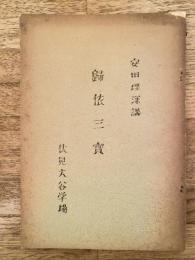 安田理深講
歸依三寳
伏見大谷学場